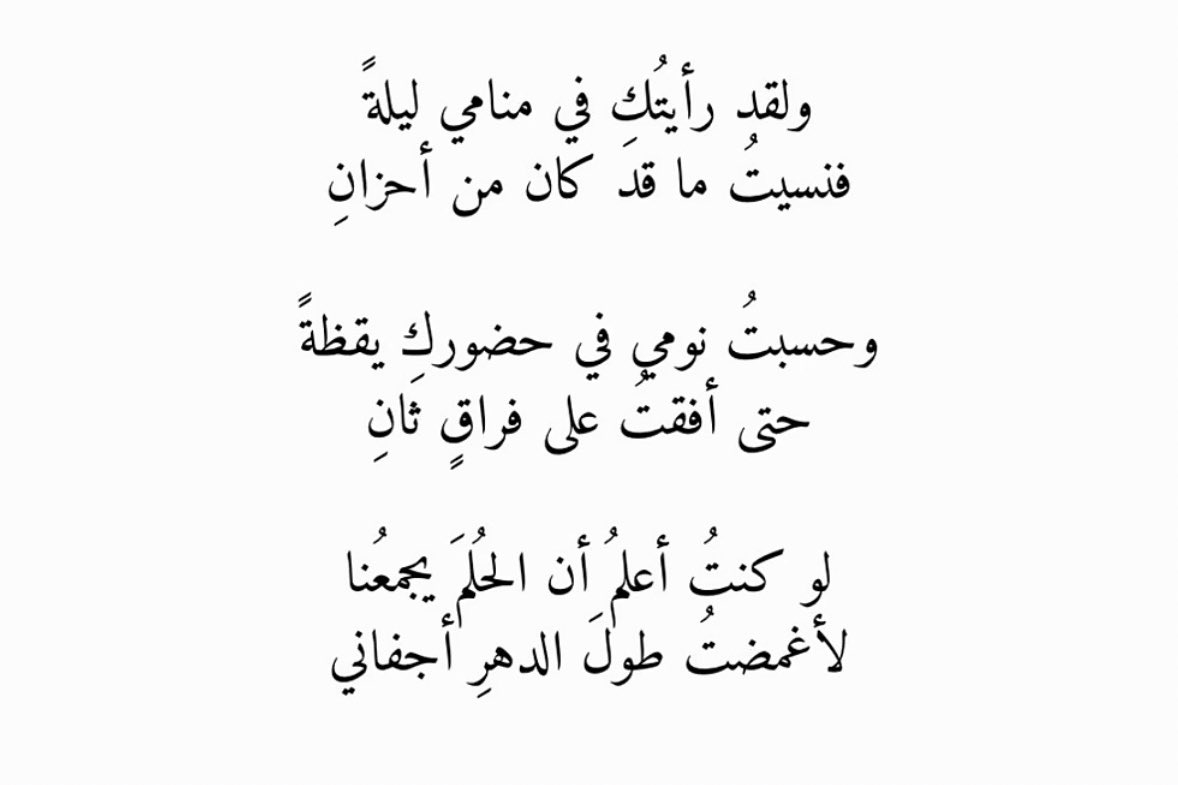 ولقد رأيتُكِ في منامي ليلةً
فنسيتُ ما قد كان من أحزانِ
وحسبتُ نومي في حضوركِ يقظةً
حتى أفقتُ على فراقٍ ثانِ
لو كنتُ أعلمُ أن الحُلمَ يجمعُنا
لأغمضتُ طولَ الدهرِ أجفاني